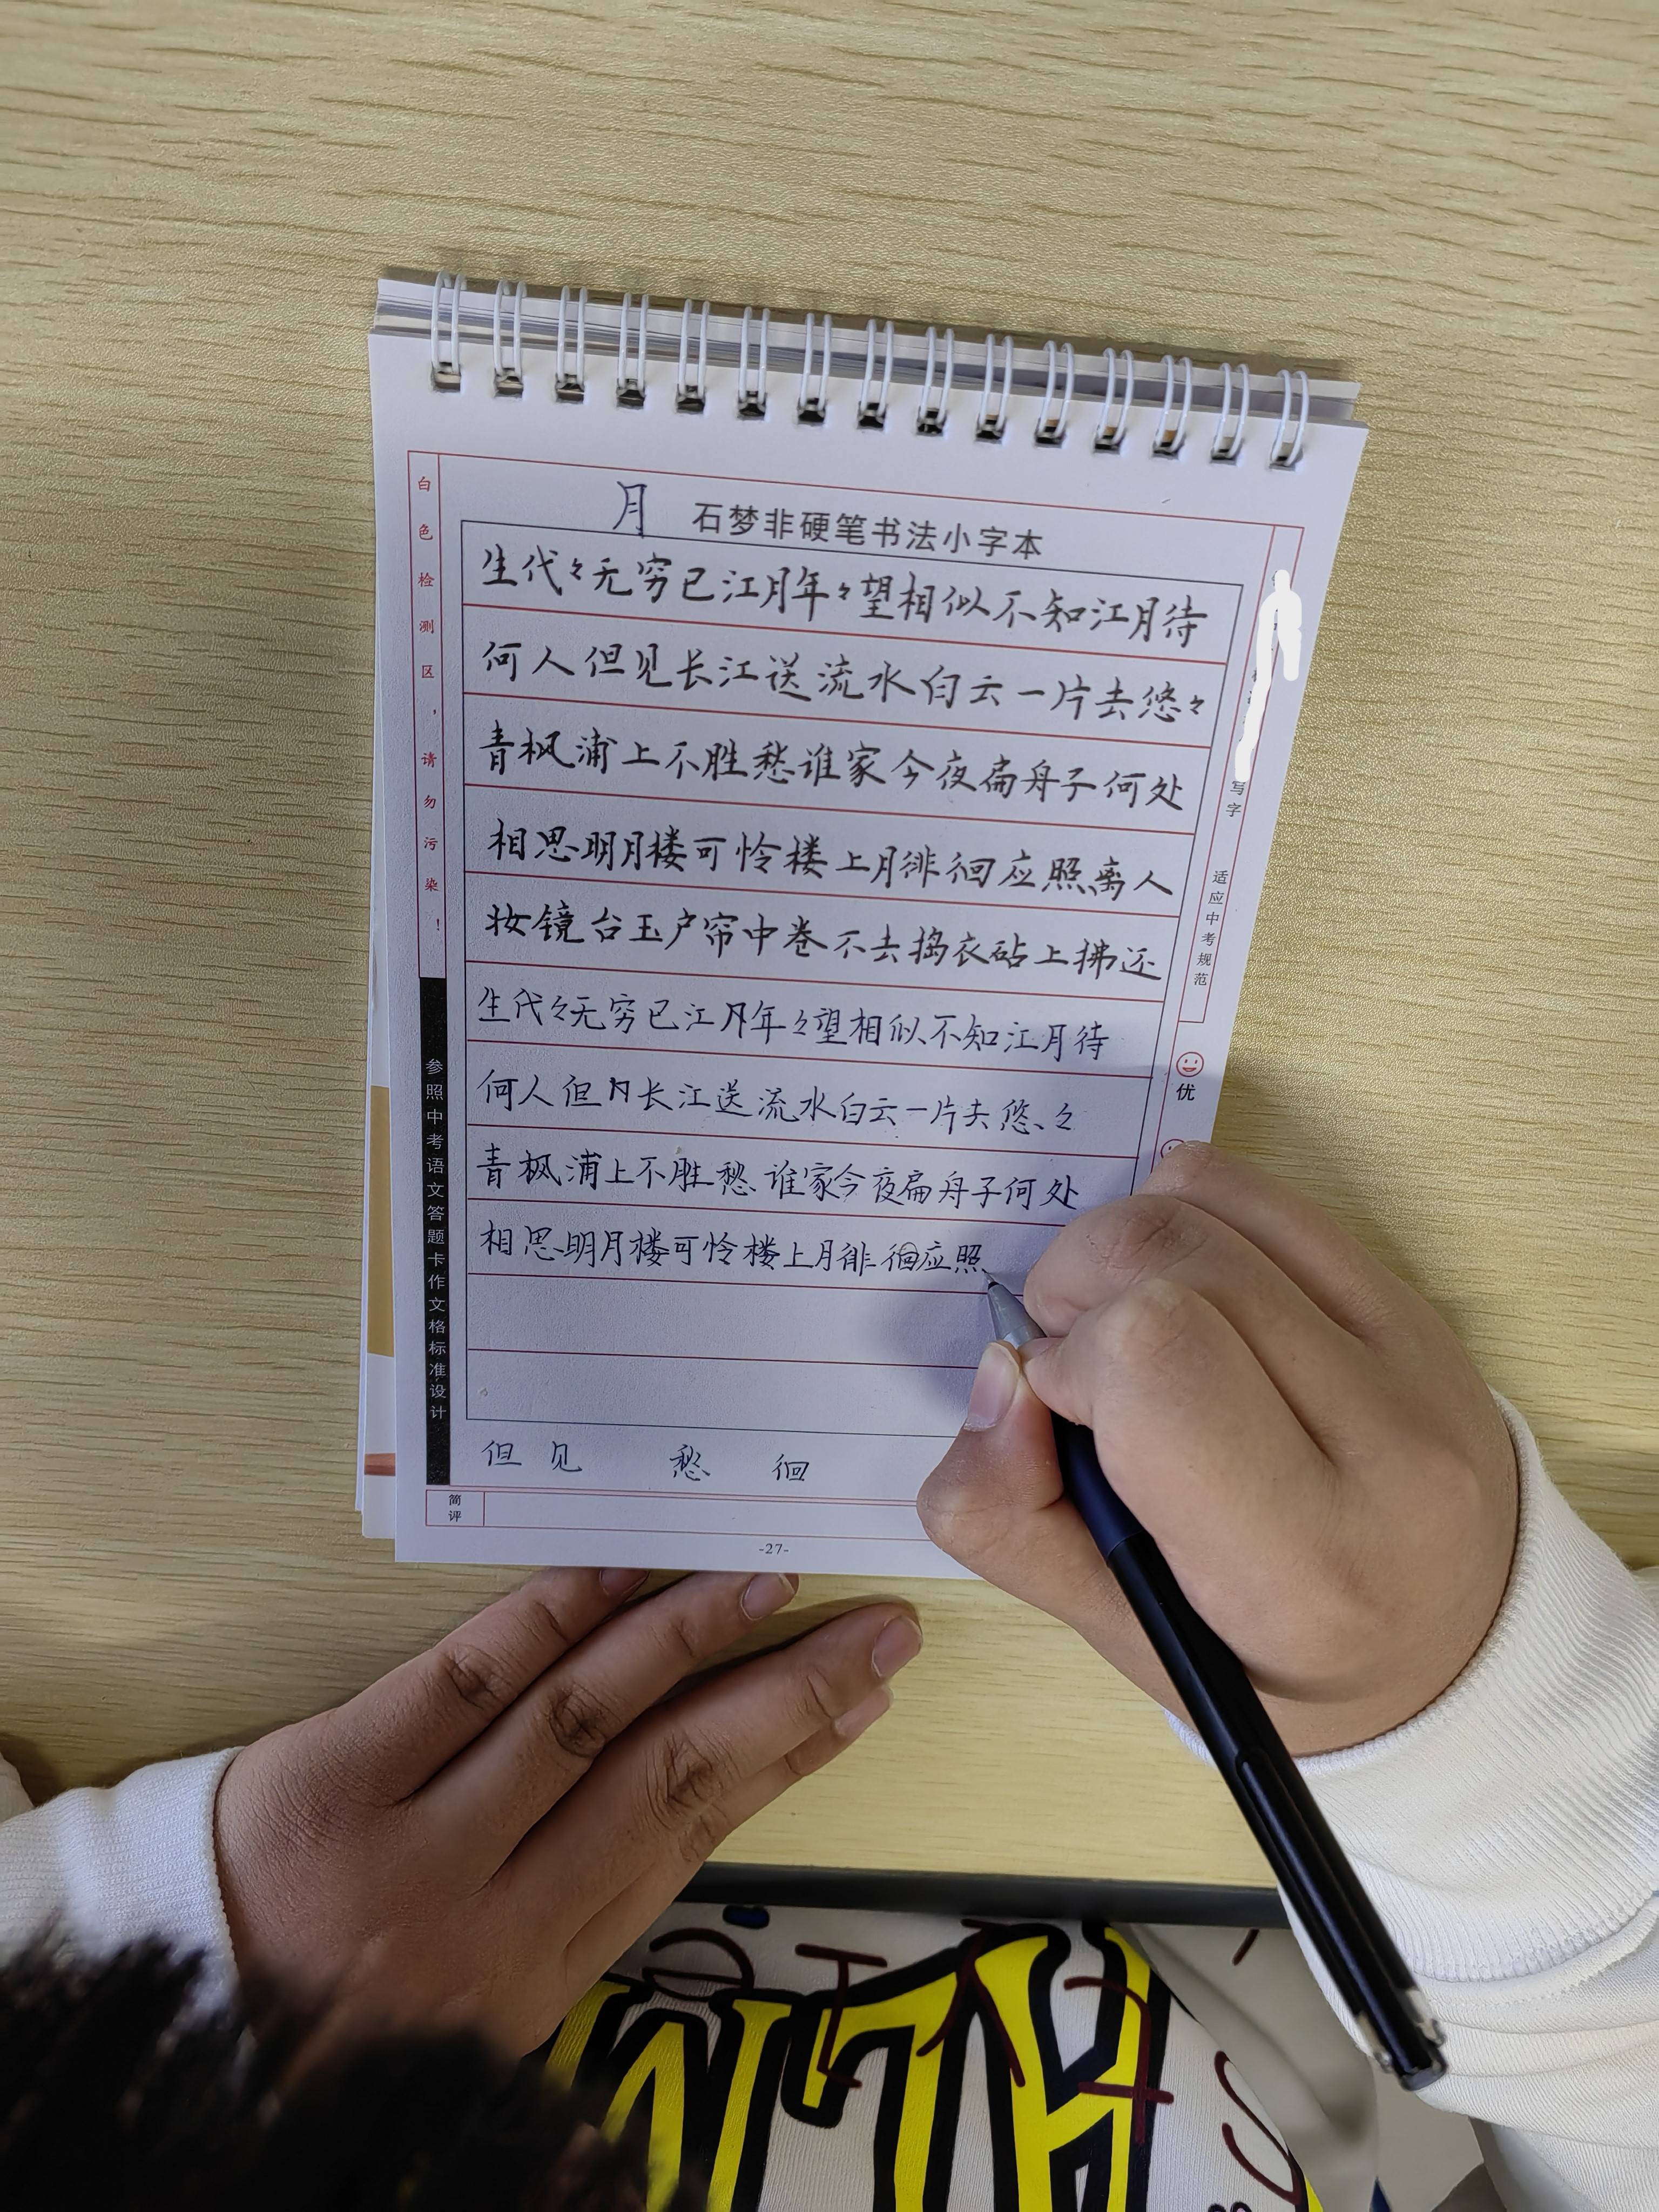 月 石梦非硬笔书法小字本
白色检测区，请勿污染！
生代々无穷已江月年々望相似不知江月待
何人但见长江送流水白云一片去悠々
青枫浦上不胜愁谁家今夜扁舟子何处
相思明月楼可怜楼上月徘徊应照离人
妆镜台玉户帘中卷不去捣衣砧上拂还
生代々无穷已江月年々望相似不知江月待
何人但见长江送流水白云一片去悠々
青枫浦上不胜愁谁家今夜扁舟子何处
相思明月楼可怜楼上月徘徊应照
但见 愁 徊
参照中考语文答题卡作文格标准设计
写字
适应中考规范
优
简评
-27-